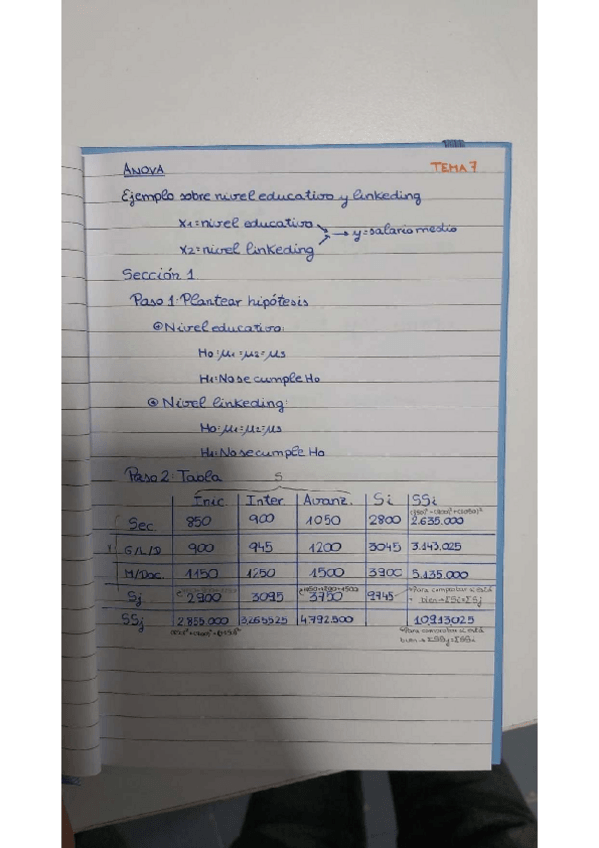 ANOVA TEMA 7
Ejemplo sobre nivel educativo y linkeding
x1=nivel educativo
→ y=salario medio
x2=nivel linkeding
Sección 1
Paso 1: Plantear hipótesis
Nivel educativo:
H0: μ1=μ2=μ3
H1: No se cumple H0
Nivel linkeding:
H0: μ1=μ2=μ3
H1: No se cumple H0
Paso 2: Tabla
Inic. Inter Avanz. Si SSi
(850)²+(900)²+(1050)²
Sec 850 900 1050 2800 2.635.000
G/L/D 900 945 1200 3045 3.143.025
M/Doc. 1150 1250 1500 3900 5.135.000
Sj 2900 3095 3750 9745
Para comprobar si está
bien → ΣSi=ΣSj
SSj 2.855.000 3265525 4.792.500 10913025
Para comprobar si está
bien →